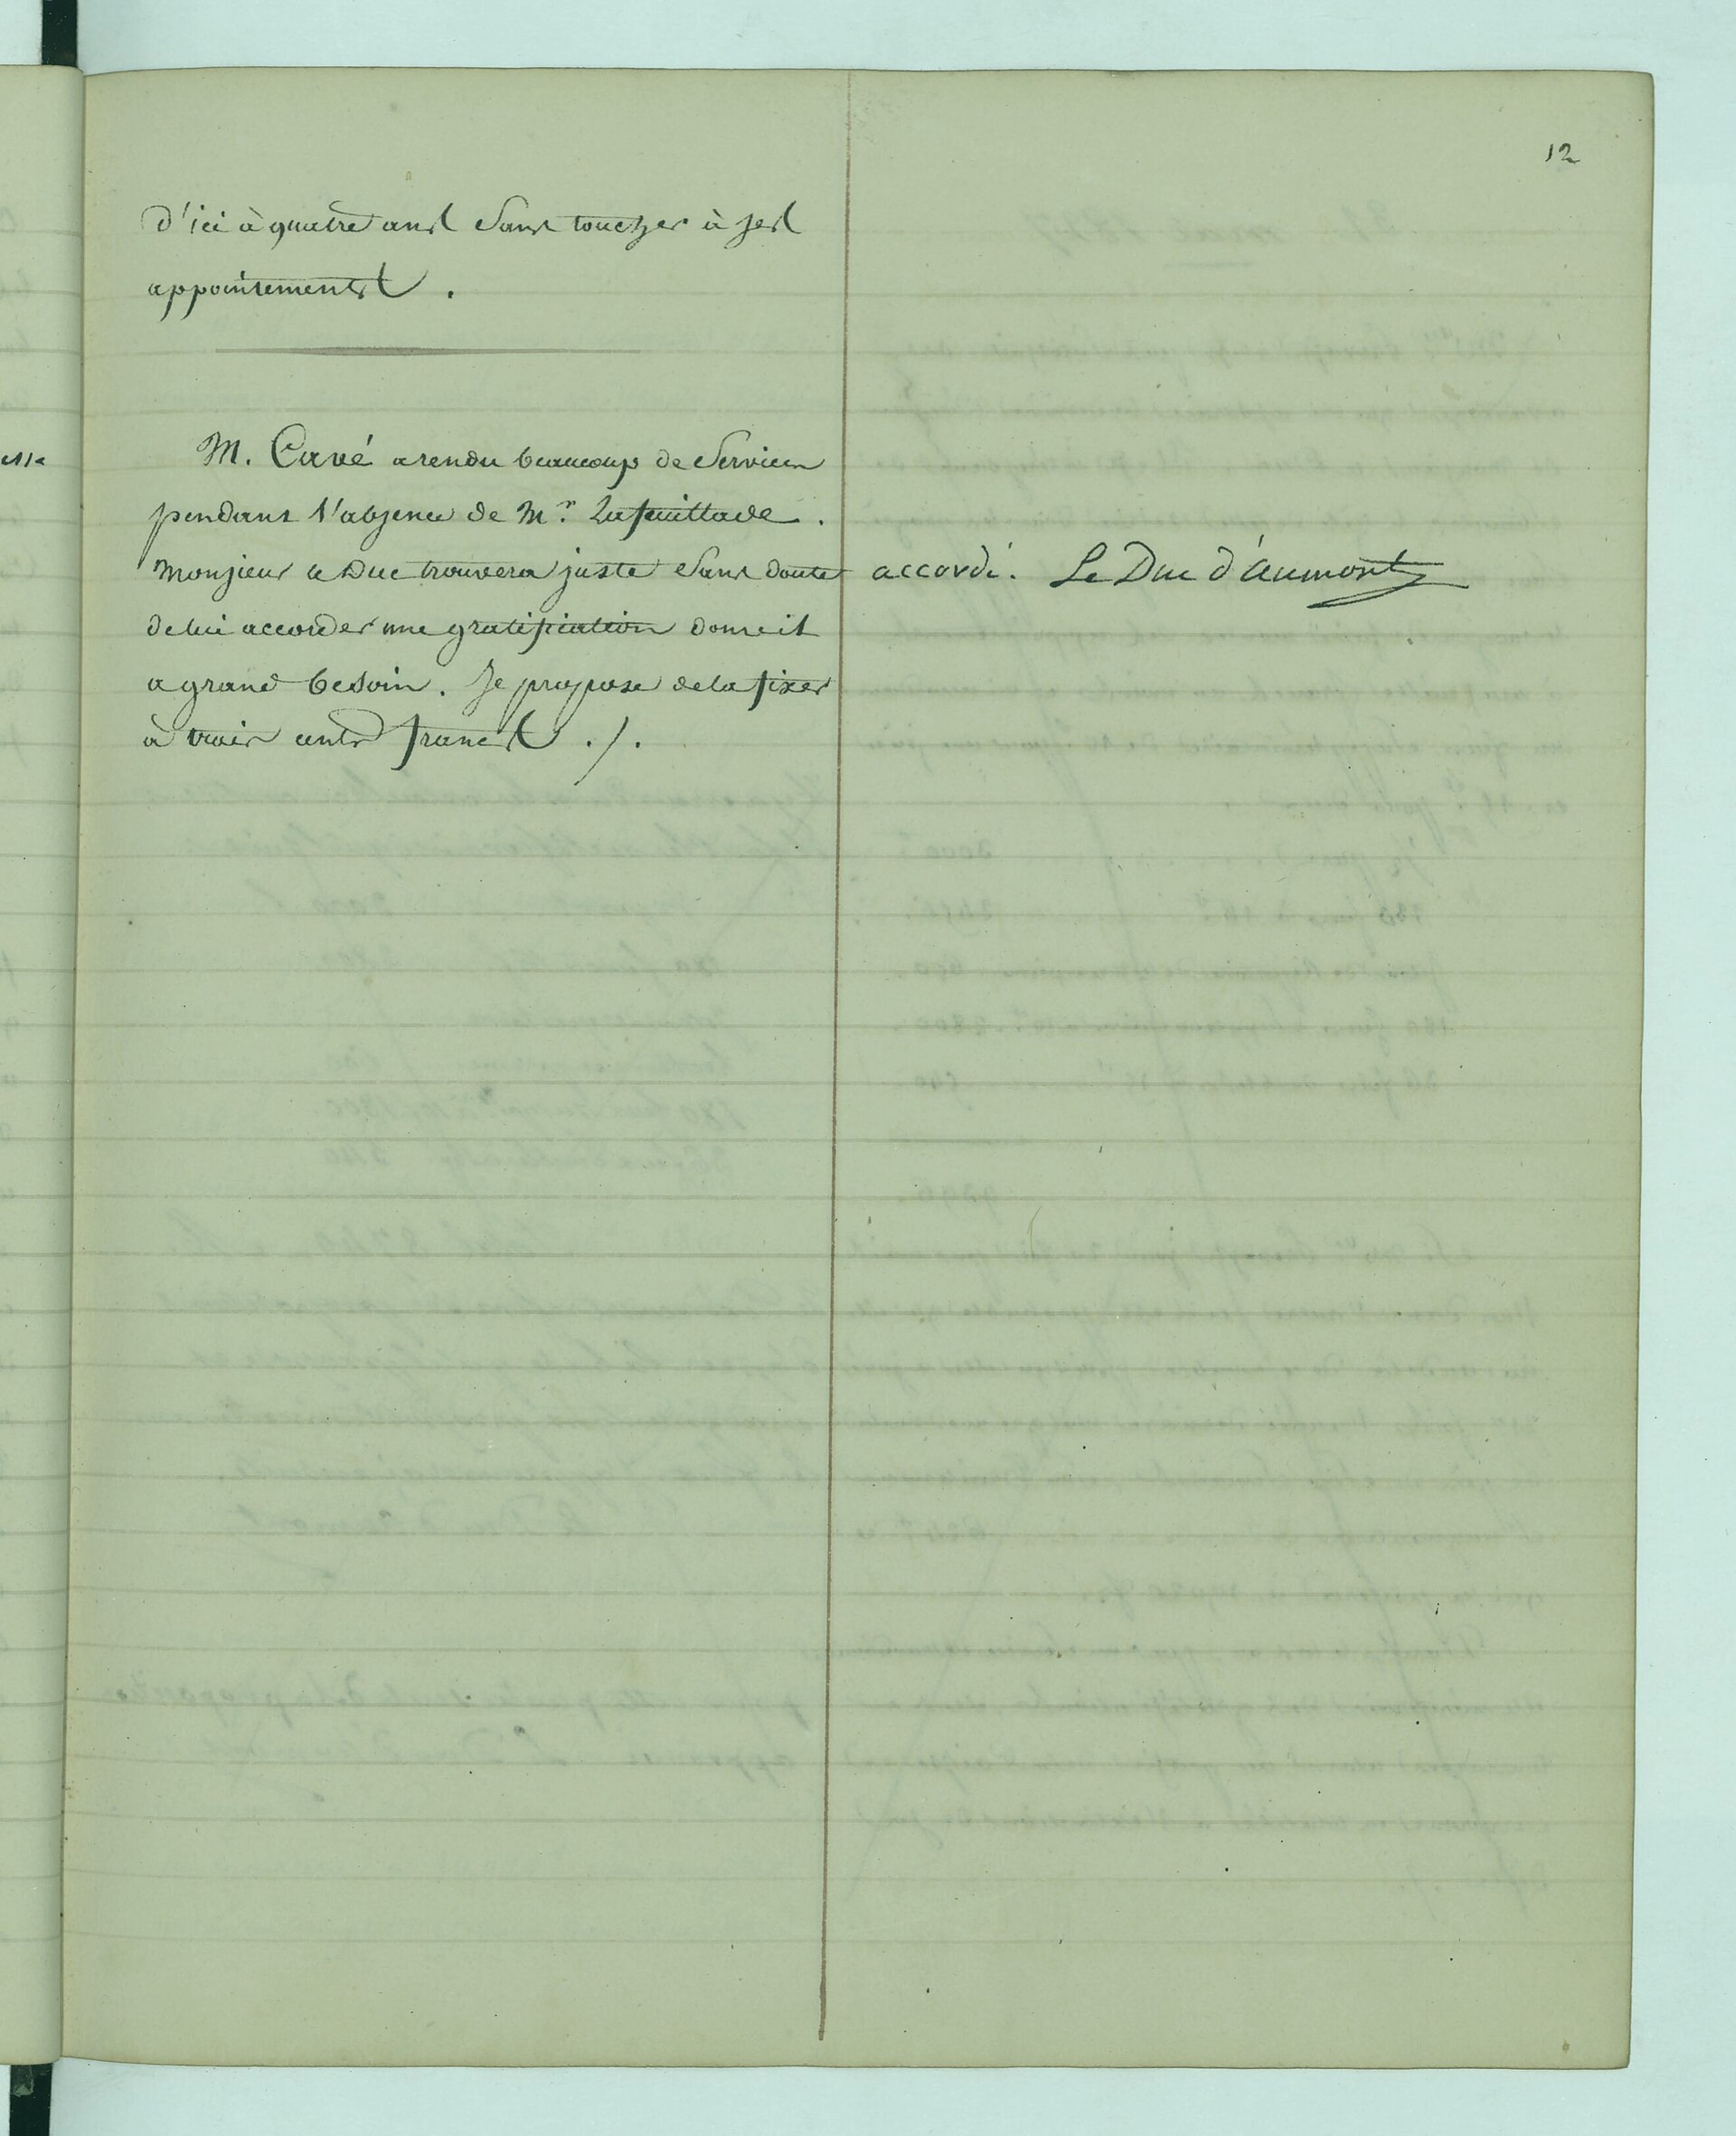 12
d'ici à quatre ans sans toucher à ses
appointements.
M. Cavé a rendu beaucoup de services
pendant l'absence de Mr. Lafeuillade.
Monsieur le Duc trouvera juste sans doute
de lui accorder une gratification dont il
a grand besoin. Je propose de la fixer
à trois cents francs ./.
accordé. Le Duc d'Aumont